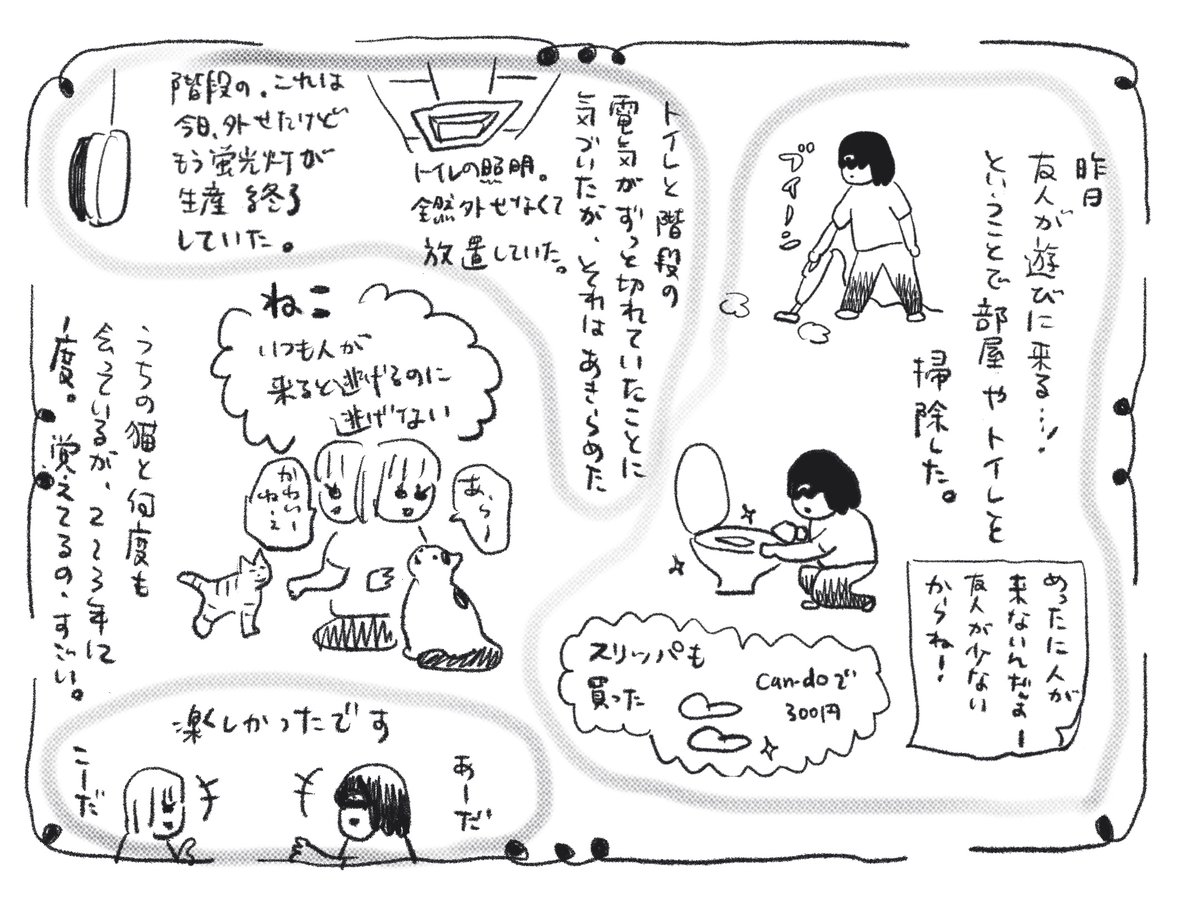 昨日
友人が遊びに来る…!
ということで部屋やトイレを
掃除した。
ブイー!
めったに人が
来ないんだよー
友人が少ない
からね!
スリッパも
買った
Can-doで
300円
トイレと階段の
電気がずっと切れていたことに
気づいたが、それはあきらめた
トイレの照明。
全然外せなくて
放置していた。
階段の。これは
今日、外せたけど
もう蛍光灯が
生産終了
していた。
ねこ
いつも人が
来ると逃げるのに
逃げてない
あらー
かわいー
ねぇ
うちの猫と何度も
会っているが、2〜3年に
一度。覚えてるの、すごい。
楽しかったです
あーだ
こーだ